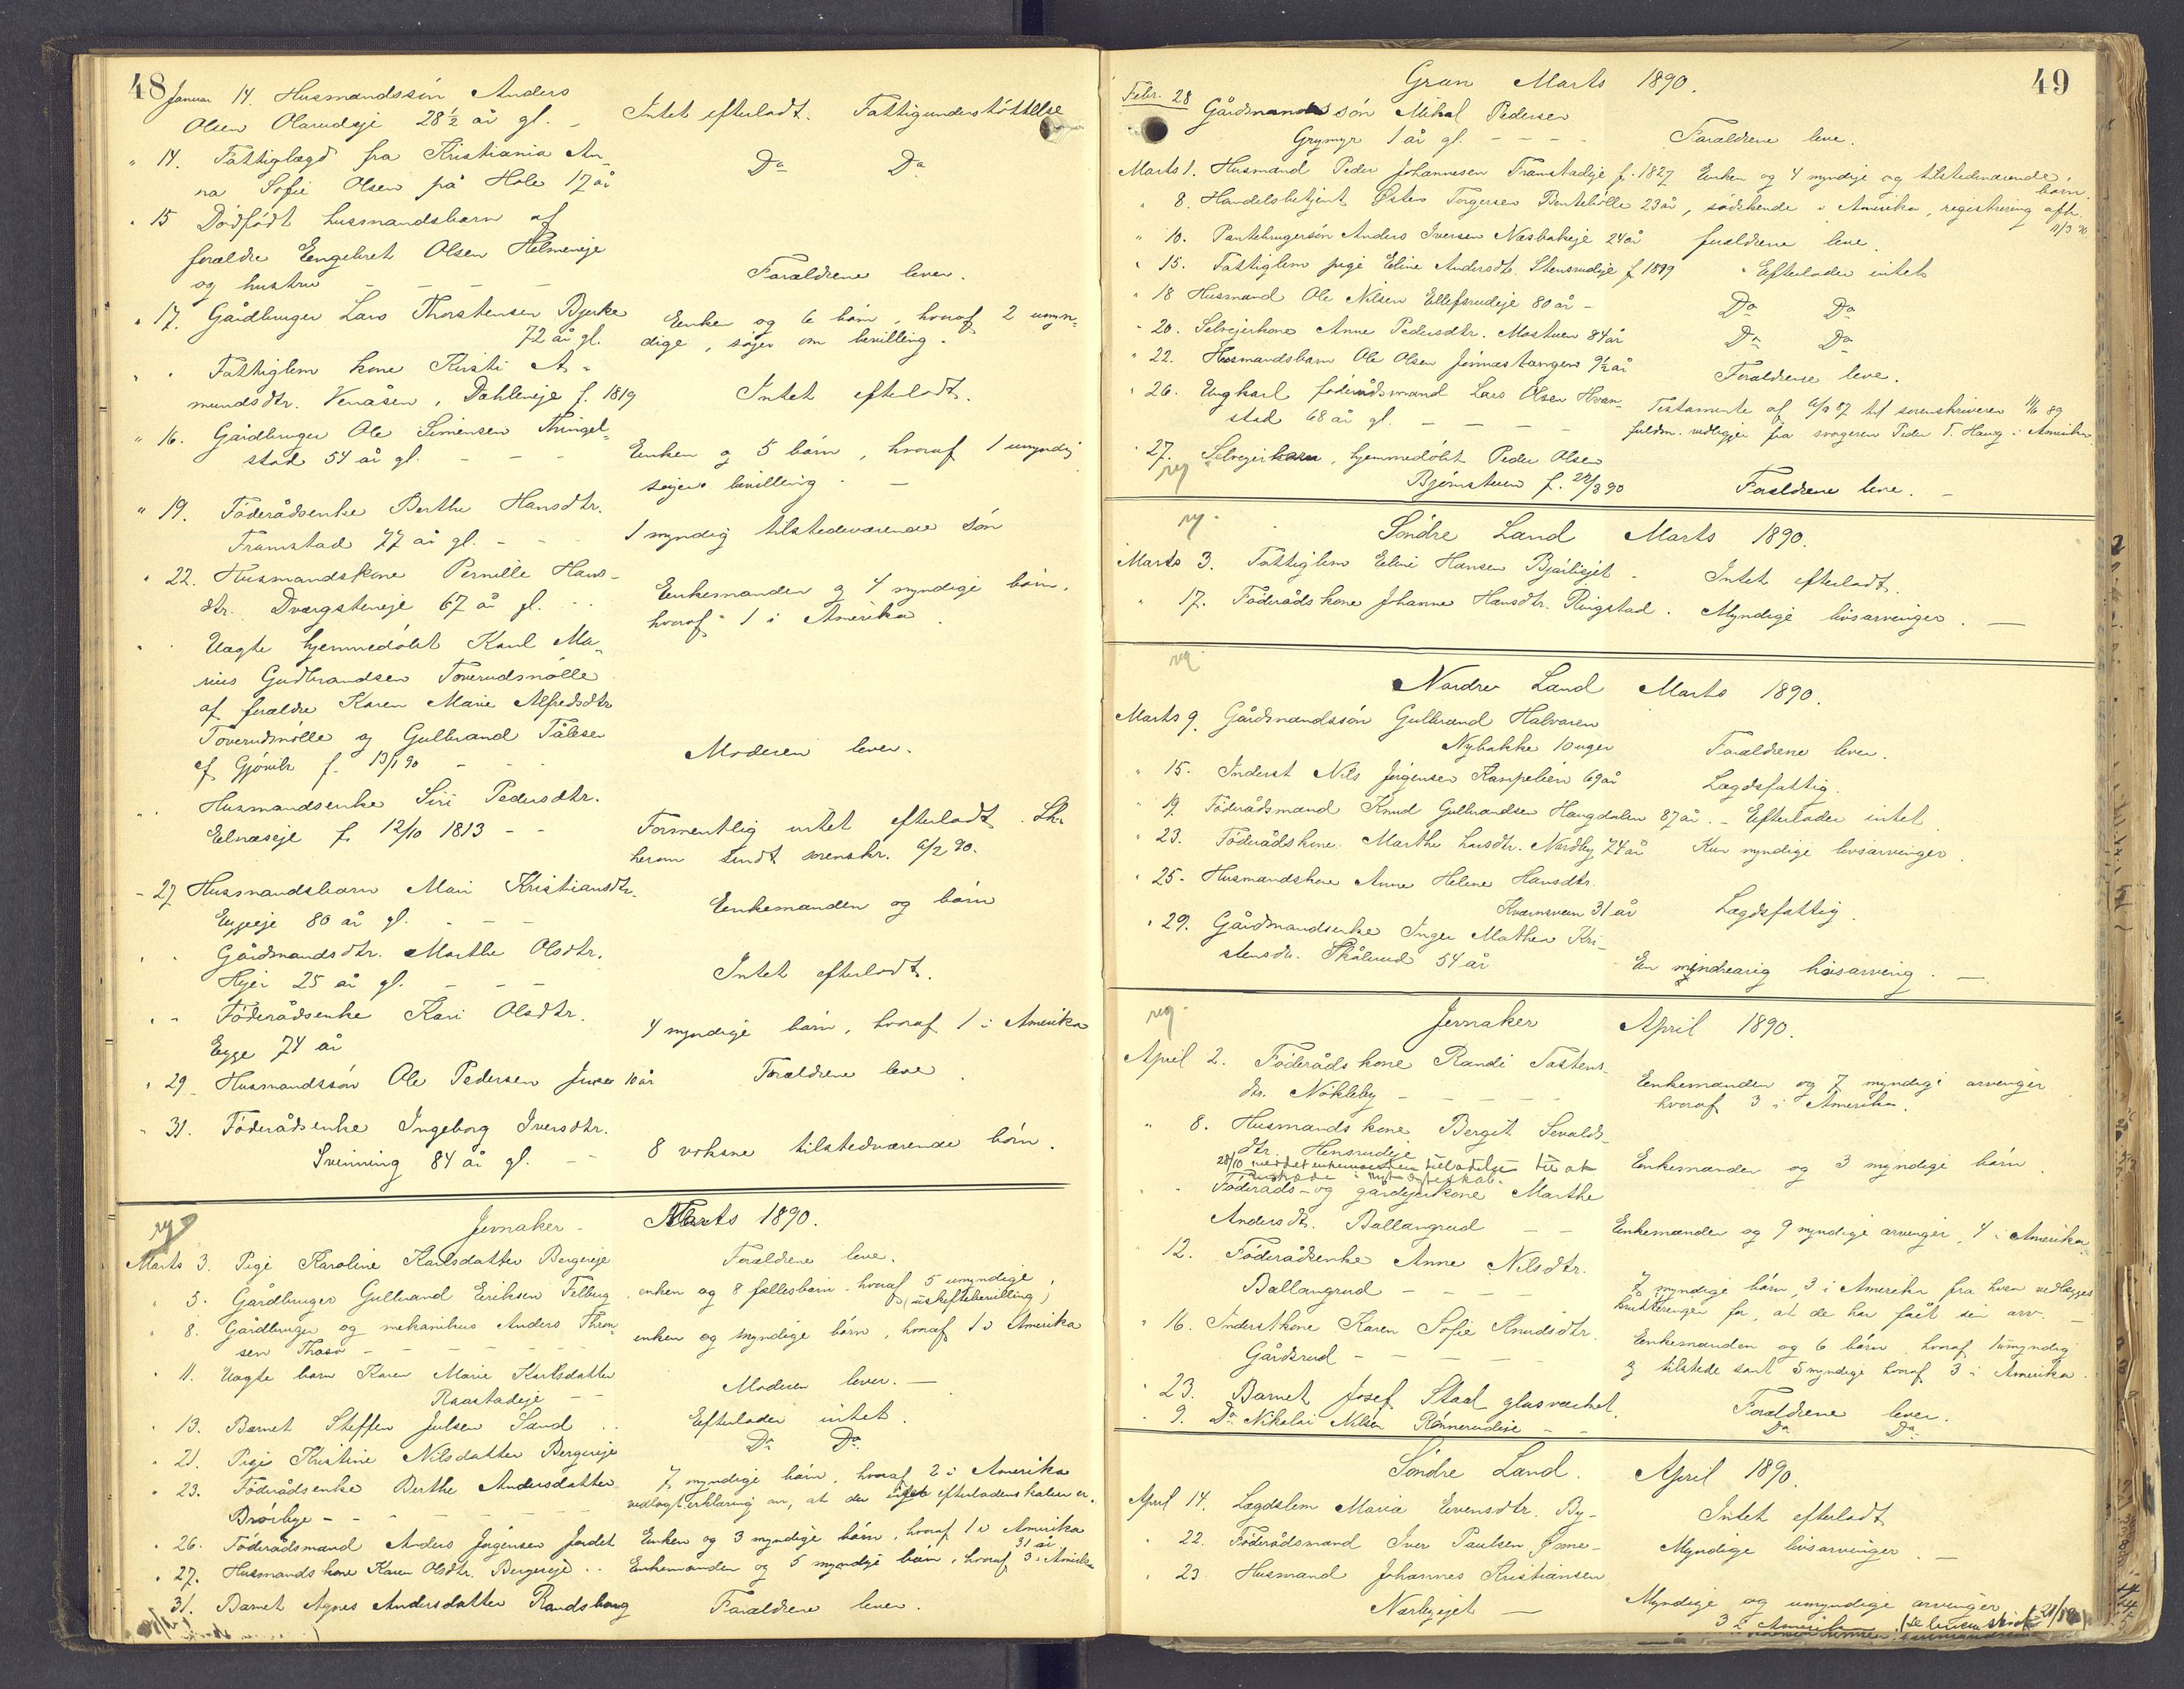 48
Januar 14. Husmandssøn Anders
Olsen Olarudeje 28½ år gl. – Intet efterladt. Fattigunderstøttelse
" 14. Fattiglægd fra Kristiania An-
na Sofie Olsen på Hole 17 år Do Do
" 15 Dødfødt husmandsbarn af
forældre Engebret Olsen Helmeneje
og hustru – – – – Forældrene lever.
" 17. Gårdbruger Lars Thorstensen Bjerke
72 år gl. Enke og 6 børn, hvoraf 2 umyn-
dige, søger om bevilling.
" " Fattiglem kone Kirsti A-
mundsdtr. Venåsen, Dahleneje f. 1819 Intet efterladt.
" 16. Gårdbruger Ole Simensen Thingel-
stad 54 år gl. – – – Enken og 5 børn, hvoraf 1 umyndig
søger bevilling. –
" 19. Føderådsenke Berthe Hansdtr.
Framstad 77 år gl. – – – 1 myndig tilstedeværende søn
" 22. Husmandskone Pernille Hans-
dtr. Dvergsteneje 67 år gl. – – Enkemanden og 4 myndige børn,
hvoraf 1 i Amerika.
" " Uægte hjemmedøbt Karl Ma-
rius Gudbrandsen Toverudmølle
af forældre Karen Marie Alfredsdtr
Toverudmølle og Gulbrand Pålsen
af Gjøvik f. 13/1 90 – – – Moderen lever.
" " Husmandsenke Siri Pedersdtr.
Elnæseje f. 12/10 1813 – – Formentlig intet efterladt. Skr.
herom sendt sorenskr. 6/2 90.
– 27 Husmandsbarn Mari Kristiansdtr.
Eggeeje 80 år gl. – – – Enkemanden og børn
" " Gårdmandsdtr. Marthe Olsdtr.
Hejer 25 år gl. – – – Intet efterladt.
" " Føderådsenke Kari Olsdtr.
Egge 74 år 4 myndige børn, hvoraf 1 i Amerika
" 29 Husmandssøn Ole Pedersen 10 år Forældrene leve.
" 31. Føderådsenke Ingeborg Iversdtr.
Svinning 84 år gl. – – 8 voksne tilstedeværende børn.
Jevnaker – Marts 1890.
Marts 3. Pige Karoline Karlsdatter Bergereje Forældrene leve.
" 5. Gårdbruger Gulbrand Eriksen Felberg enken og 8 fællesbørn, hvoraf 5 umyndige,
(uskiftebevilling)
" 8. Gårdbruger og mekanikus Anders Thron-
sen – – – – – enken og myndige børn, hvoraf 1 i Amerika
" 11. Uægte barn Karen Marie Karlsdatter
Raastadeje – – Moderen lever. –
" 13. Barnet Steffen Julsen Sand Efterlader intet.
" 21. Pige Kristine Nilsdatter Bergereje Do Do.
" 23. Føderådsenke Berthe Andersdatter
Brørbye – – – – – 7 myndige børn, hvoraf 2 i Amerika
vedlagt erklæring om, at der intet efterladenskaber er.
" 26. Føderådsmand Anders Jørgensen Jordet Enken og 3 myndige børn, hvoraf 1 i Amerika
31 år
" 27. Husmandskone Karen Olsdtr. Bergereje . . Enkemanden og 5 myndige børn, hvoraf 3 i Amerika
31. Barnet Agnes Andersdatter Randshaug Forældrene lever.
49
Gran Marts 1890.
Febr. 28 Gårdmandssøn Mikal Pedersen
Grymyr 1 år gl. – – – – Forældrene leve.
Marts 1. Husmand Peder Johannesen Framstadeje f. 1827 Enken og 4 myndige og tilstedeværende
børn
" 8. Handelsbetjent Østen Torgersen Bentebølle 23 år, sødskende i Amerika, registrering afh.
" 10. Pantebrugersøn Anders Iversen Næsbakeje 24 år forældrene leve.
" 15. Fattiglem pige Eline Andersdtr. Stensrudeje f. Efterlader intet
" 18 Husmand Ole Nilsen Ellefsrudeje 80 år – Do Do
" 20. Selvejerkone Anne Pedersdtr. Mostuen 84 år Do Do
" 22. Husmandsbarn Ole Olsen Jønnastangen 9½ år Forældrene leve.
" 26. Ungkarl føderådsmand Lars Olsen Hvan-
stad 68 år gl. – – – – Testamente af 6/9 87 til sorenskriveren 11/6 89
fuldm. vedligger fra svogeren Peder T. Haug i Amerika
" 27. Selvejerbarn, hjemmedøbt Peder Olsen
Bjørnstuen f. 22/3 90 Forældrene leve. –
Søndre Land Marts 1890.
Marts 3. Fattiglem Eline Hansen Bjørliejet – Intet efterladt.
" 17. Føderådskone Johanne Hansdtr. Ringstad. Myndige livsarvinger. –
Nordre Land Marts 1890.
Marts 9. Gårdmandssøn Gulbrand Halvorsen
Nybakke 10 uger Forældrene lever.
" 15. Inderst Nils Jørgensen Kampelien 69 år Lægdsfattig.
" 19. Føderådsmand Knud Gulbrandsen Haugdalen 87 år. – Efterlader intet
" 23. Føderådskone Marthe Larsdtr. Nordby 74 år Kun myndige livsarvinger.
" 25. Husmandskone Anne Helene Hansdtr.
Kværnsveen 31 år Lægdsfattig.
" 29. Gårdmandsenke Inger Mathea Kri-
stensdtr. Skålerud 54 år En mindreårig livsarving. –
Jevnaker April 1890.
April 2. Føderådskone Randi Tostens-
dtr. Nøkleby – – – – Enkemanden og 7 myndige arvinger
hvoraf 3 i Amerika.
" 8. Husmandskone Bergit Sevalds-
dtr. Hensrudeje Enkemanden og 3 myndige børn.
28/10 meddelt enkemanden tilladelse til at
" " Føderåds- og gårdejerkone Marthe
Andersdtr. Ballangrud – – Enkemanden og 9 myndige arvinger, 4 i Amerika
" 12. Føderådsenke Anne Nilsdtr.
Ballangrud – – – – 7 myndige børn, 3 i Amerika fra hvem vedlægges
kvitteringer for, at de har fået sin arv. –
" 16. Inderstkone Karen Sofie Knudsdtr.
Gårdsrud – – – – – Enkemanden og 6 børn, hvoraf 1 umyndig
og tilstede samt 5 myndige hvoraf 3 i Amerika.
" 23. Barnet Josef Staal glasværket. Forældrene lever.
" 9. Do Nikolai Nilsen Rønnerudeje – – Do Do
Søndre Land. April 1890.
April 14. Lægdslem Maria Evensdtr. By- Intet efterladt
" 22. Føderådsmand Iver Paulsen – Myndige livsarvinger. –
" 23. Husmand Johannes Kristiansen
Nørbyejet – Myndige og umyndige arvinger
3 i Amerika